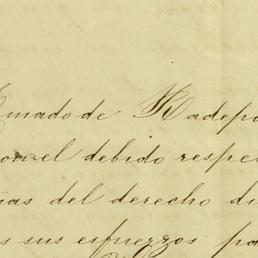 mado de Radepo
con el debido respe
as del derecho di
s sus esfuerzos pa